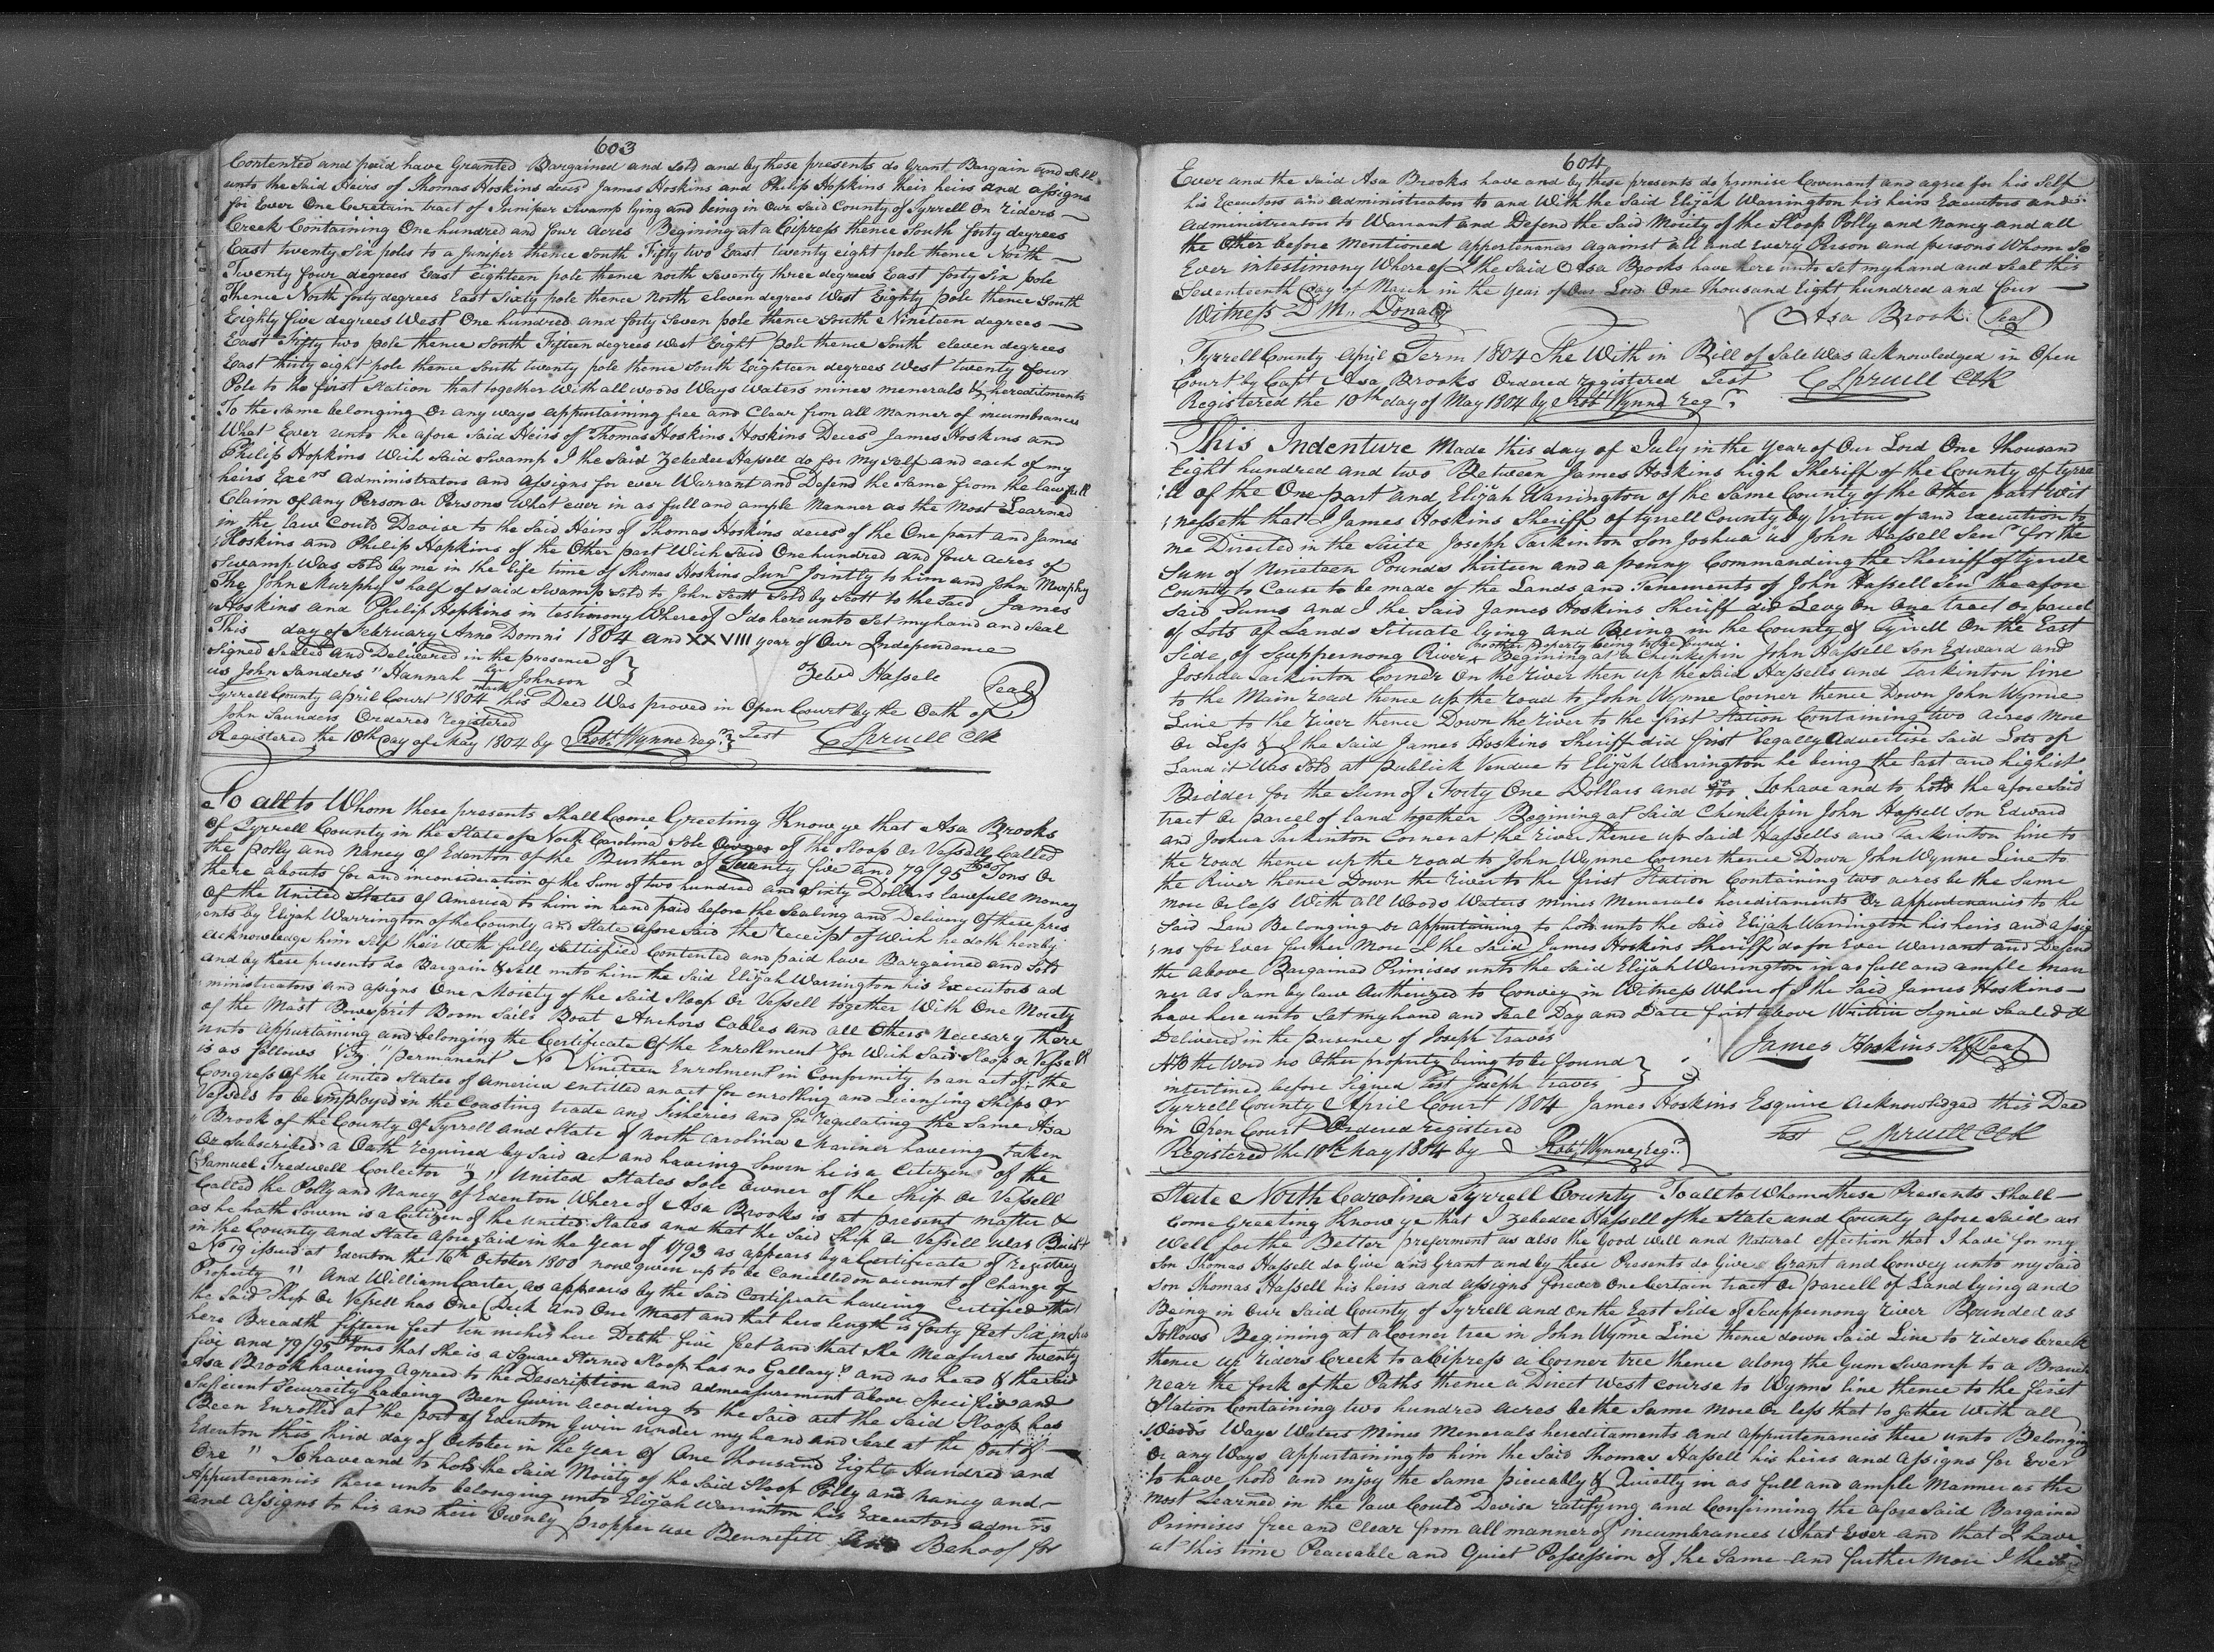 603
Contented and paid have Granted Bargained and Sold and by these presents do Grant Bargain and Sell
unto the Said Heirs of Thomas Hoskins decd James Hoskins and Philip Hopkins their heirs and assigns
for Ever One Ceretain tract of Juniper Swamp lying and being in Our Said County of Tyrrell On riders
Creek Containing One hundred and four Acres Begining at a Cipress thence South forty degrees
East twenty Six poles to a Juniper thence South Fifty two East twenty eight pole thence North
Twenty four degrees East Eighteen pole thence north Seventy three degrees East forty Six pole
Thence North forty degrees East Sixty pole thence North eleven degrees West Eighty pole thence South
Eighty five degrees West One hundred and forty Seven pole thence South Nineteen degrees
East Fifty two pole thence South Fifteen degrees West Eight pole thence South eleven degrees
East thirty eight pole thence South twenty pole thence South Eighteen degrees West twenty four
Pole to the first Station that together With all woods Ways Waters mines menerals & hereditments
To the Same belonging Or any ways appurtaining free and Clear from all Manner of incumbrances
What Ever unto the afore Said Heirs of Thomas Hoskins Hoskins Decesd James Hoskins and
Philip Hopkins Wich Said Swamp I the Said Zebedee Hassell do for My Self and each of my
heirs Exers Administrators and assigns for ever Warrant and Defend the Same from the lawfull
Claim of any Person or Persons What ever in as full and ample Manner as the Most Learned
in the law Could Devise to the Said Heirs of Thomas Hoskins decesd of the One part and James
Hoskins and Philip Hopkins of the Other part Wich Said One hundred and four Acres of
Swamp Was Sold by me in the life time of Thomas Hoskins Junr Jointly to him and John Murphy
The John Murphys half of said Swamp Sold to John Scott Sold by Scott to the Said James
Hoskins and Philip Hopkins in testimony Where of I do here unto Set my hand and Seal
This day of February Anno Domni 1804 and XXVIII year of Our Independence
Signed Sealed and Delivered in the presence of
us John Sanders " Hannah her mark Johnson Zebd Hassell Seal
Tyrrell County April Court 1804 this Deed Was proved in Open Court by the Oath of
John Saunders Ordered registered
Registered the 10th day of May 1804 by Robt Wynne regr Test C Spruill Clk
To all to Whom these presents Shall Come Greeting Know ye that Asa Brooks
Of Tyrrell County in the State of North Carolina Sole Owner of the Sloop Or Vessell Called
the polly and Nancy of Edenton of the Burthen of Twenty five and 79/95ths Tons Or
there abouts for and inconsideration of the Sum of two hundred and Sixty Dollers lawfull money
Of the United States of America to him in hand paid before the Sealing and Delivery Of these pres
ents by Elijah Warrington of the County and State afore Said the receipt of Wich he doth hereby
acknowledge him Self their With fully Sattisfied Contented and paid have Bargained and Sold
and by these presents do Bargain & Sell unto him the Said Elijah Warrington his Executors ad
ministrators and assigns One Moiety of the Said Sloop Or Vessell together With One Moiety
of the Mast Bowsprit Boom Sails Boat Anchors Cables and all Others necesary there
unto appurtaining and belonging the Certificate Of the Enrollment for Wich Said Sloop or Vessell
is as follows Viz " permanent No Nineteen Enrolment in Conformity to an act of the
Congress Of the United States of America entitled an act for enrolling and Licensing Ships Or
Vessels to be Employed in the Coasting trade and Fisheries and for regulating the Same Asa
Brook of the County of Tyrrell and State of North Carolina Mariner haveing taken
Or Subscribed a Oath required by Said act and haveing Sworn he is a Citizen of the
Samuel Tredwell Colector " United States Sole Owner of the Ship Or Vessell
Called the Polly and Nancy of Edenton Where of Asa Brooks is at present Master &
as he hath Sworn is a Citizen of the United States and that the Said Ship Or Vessell Was Built
in the County and State afore Said in the Year of 1793 as appears by a Certificate of registry
No 19 issued at Edenton the 16th October 1800 now given up to be Cancelled on account of Change of
Property " And William Carter as appears by the Said Certificate haveing Certified that
he Said Ship Or Vessell has One Deck and One Mast and that here length is forty feet Six inches
here Breadth fifteen feet ten inches here Debth five feet and that She Measures twenty
five and 79/95ths Tons that She is a Square Sterned Sloop has no Gallary and no head & the Said
Asa Brook haveing Agreed to the Description and admeasurement above Specified and
Suficient Security haveing Been Givin according to the Said act the Said Sloop has
Been Enrolled at the port of Edenton Givin under my hand and Seal at the port of
Edenton this third day of October in the Year of One Thousand Eight Hundred and
One " To have and to hold the Said Moiety of the Said Sloop Polly and Nancy and
Appurtenancies there unto belonging unto Elijah Warrinton his Executors admrs
and assigns to his and their Ownly propper use Bennefitt and Behoof for
604
Ever and the Said Asa Brooks have and by these presents do promise Covenant and agree for his Self
his Executors and administrators to and With the Said Elijah Warrington his heirs Executors and
Administrators to Warrant and Defend the Said Moiety of the Sloop Polly and Nancy and all
the Other before Mentioned appertenances against all and Every Person and persons Whom So
Ever intestimony Where of I the Said Asa Brooks have here unto Set my hand and Seal this
Seventeenth day of March in the year of Our Lord One Thousand Eight hundred and four
Witness D Mc Donald Asa Brook Seal
Tyrrell County April Term 1804 The With in Bill of Sale Was acknowledged in Open
Court by Capt Asa Brooks Ordered registered Test C Spruill Clk
Registered the 10th day of May 1804 by Robt Wynne regr
This Indenture Made this day of July in the year of Our Lord One thousand
Eight hundred and two Between James Hoskins high Sheriff of the County of tyrre
ll of the One part and Elijah Warrington of the Same County of the Other part Wit
nesseth that I James Hoskins Sheriff of tyrrell County by Virtue of and Execution to
me Directed in the Suite Joseph Tarkinton Son Joshua vs John Hassell Senr for the
Sum of Nineteen Pounds thirteen and a penny Commanding the Sheriff of tyrrell
County to Cause to be made of the Lands and Tenements of John Hassell Senr the afore
Said Sums and I the Said James Hoskins Sheriff did Levy On One tract or parcel
of Lots of Lands Situate lying and Being in the County of Tyrrell On the East
Side of Scuppernong River no other property being to be found Begining at a Chinkepin John Hassell Son Edward and
Joshua Tarkinton Corner On the river then up the Said Hassells and Tarkinton line
to the Main road thence up the road to John Wynne Corner thence Down John Wynne
Line to the river thence Down the river to the first Station Containing two Acres More
Or Less & I the Said James Hoskins Sheriff did first legally Advertise Said Lots of
Land it Was Sold at publick Vendue to Elijah Warrington he being the last and highist
Bidder for the Sum of Forty One Dollars and 50/100 To have and to hold the afore Said
tract Or parcel of land together Begining at Said Chinkepin John Hassell Son Edward
and Joshua Tarkinton Corner at the river thence up Said Hassells and Tarkinton line to
the road thence up the road to John Wynne Corner thence Down John Wynne Line to
the River thence Down the river to the first Station Containing two acres be the Same
more Or less With all Woods Waters mines Menerals hereditaments Or appurtenancies to the
Said Land Belonging or appurtaining to hold unto the Said Elijah Warrington his heirs and assig
ns for Ever further More I the Said James Hoskins Sheriff do for Ever Warrant and Defend
the above Bargained Primises unto the Said Elijah Warrington in as full and ample man
ner as I am by law Authorized to Convey in Witness Where of I the Said James Hoskins
have here unto Set my hand and Seal Day and Date first above Writtin Signed Sealed &
Delivered in the presence of Joseph traves
NB the Word no Other property being to be found James Hoskins Shff Seal
intertined before Signed Test Joseph Traves
Tyrrell County April Court 1804 James Hoskins Esquire Acknowledged this Deed
in Open Court Ordered registered Test C Spruill Clk
Registered the 10th May 1804 by Robt Wynne regr
State North Carolina Tyrrell County To all to Whom these Presents Shall
Come Greeting Know ye that I Zebedee Hassell of the State and County afore Said as
Well for the Better preferment as also the Good Will and Natural effection that I have for my
Son Thomas Hassell do Give and Grant and by these Presents do Give Grant and Convey unto my Said
Son Thomas Hassell his heirs and assigns forever One Certain tract Or parcell of Land lying and
Being in Our Said County of Tyrrell and On the East Side of Scuppernong river Bounded as
Follows Begining at a Corner tree in John Wynne Line thence down Said Line to riders Creek
thence up riders Creek to a Cipress a Corner tree thence along the Gum Swamp to a Branch
Near the fork of the Paths thence a Direct West course to Wynns line thence to the first
Station Containing two hundred acres be the Same More Or less that to gether With all
Woods Ways Waters Mines Menerals hereditaments and appurtenancis there unto Belonging
Or any Ways appurtaining to him the Said Thomas Hassell his heirs and assigns for Ever
to have hold and injoy the Same piecably & Quietly in as full and ample Manner as the
Most Learned in the law Could Devise ratifying and Confirming the afore Said Bargained
Primises free and Clear from all manner of incumbrances What Ever and that I have
at this time Peaceable and Quiet Possession of the Same and further More I the Said